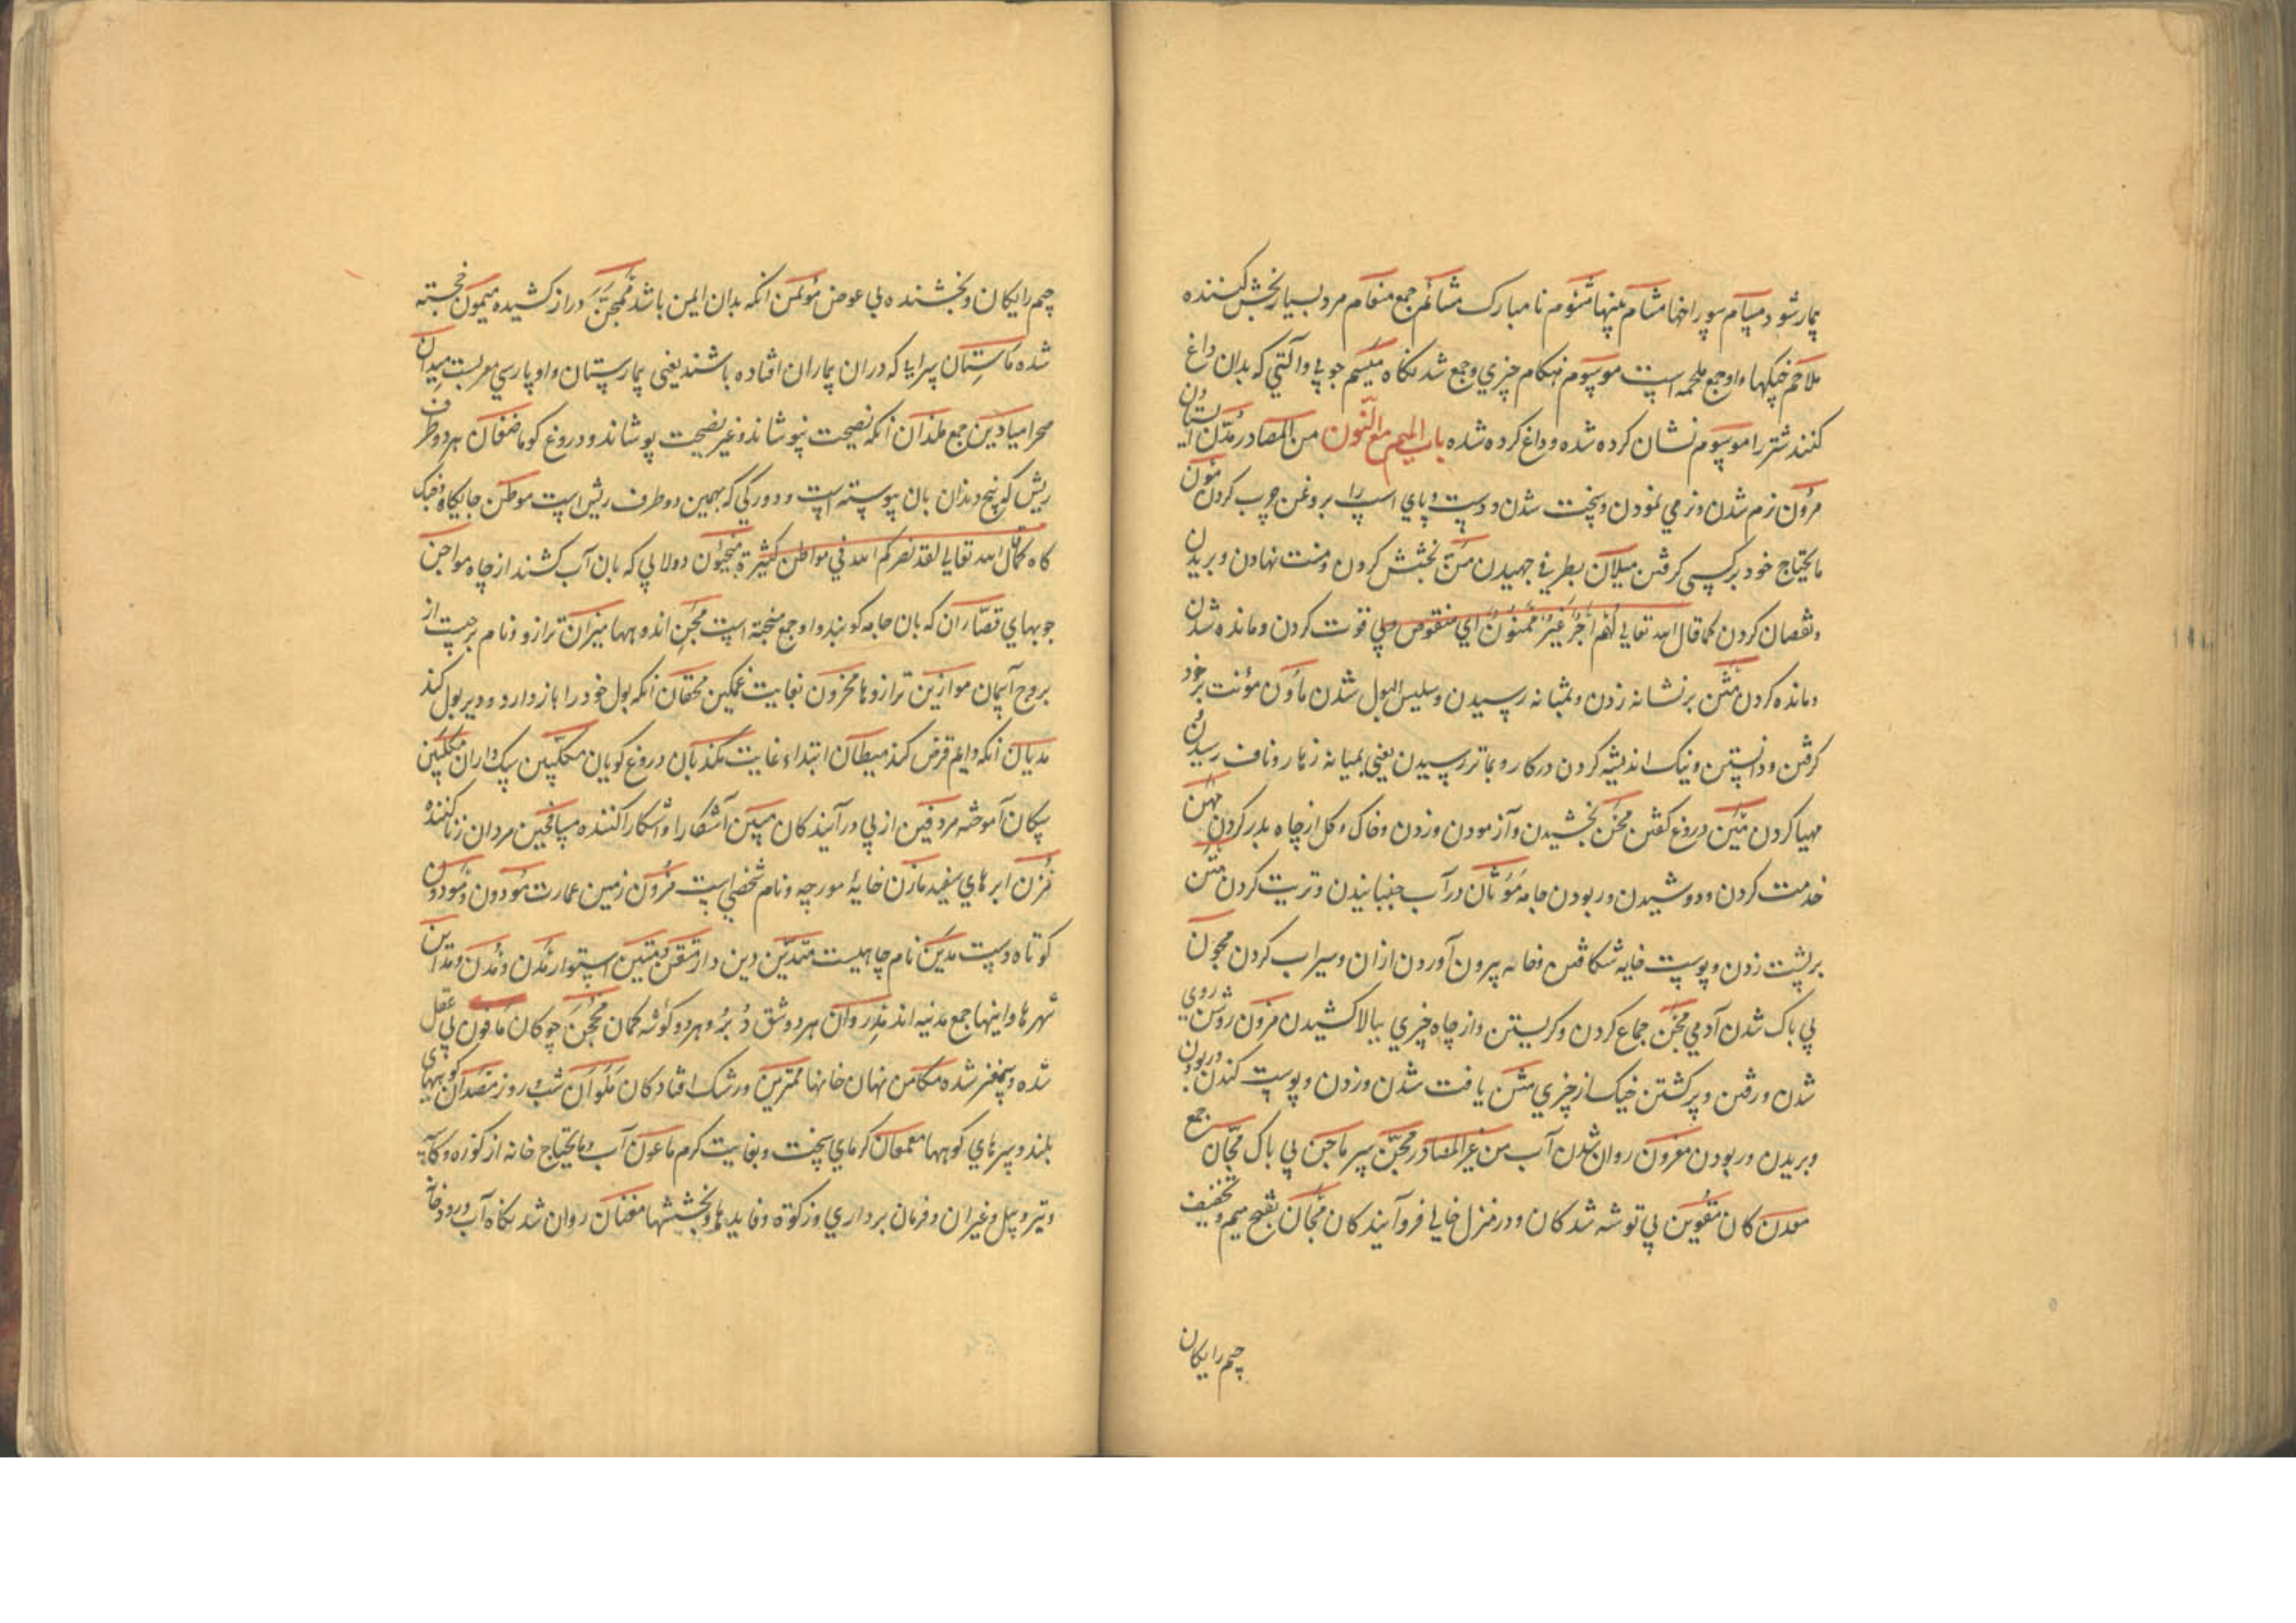 بیمار شود مسام سوراخها مشام بینیها مشئوم نامبارک مشائم جمع منعام مرد بسیار بخشش کننده
ملاحم جنگها واو جمع ملحمه است موسوم هنگام چیزی وجمع شدنگاه میسم جوبی وآلتی که بدان داغ
کنند شتر را موسوم نشان کرده شده وداغ کرده شده باب المیم مع النون من المصادر مدن ایستادن
مرون نرم شدن ونرمی نمودن وسخت شدن ودست وپای اسپ را بروغن چرب کردن مون
مایحتاج خود بر کسی گرفتن میلان بطرفی جهیدن من بخشش کردن ومنت نهادن وبریدن
ونقصان کردن کما قال الله تعالی لهم اجر غیر ممنون ای منقوص وبی قوت کردن ومانده شدن
ومانده کردن مثن بر نشانه زدن وبمثانه رسیدن وسلس البول شدن مأون مؤنت بر خود
گرفتن ودانستن ونیک اندیشه کردن در کار وبمانه رسیدن یعنی بمیانه زهار وناف رسیدن
مهیا کردن مین دروغ گفتن محن بخشیدن وآزمودن وزدن وخاک وگل از چاه بدر کردن مهن
خدمت کردن ودوشیدن وربودن جامه موثان در آب جنبانیدن وتربت کردن متن
بر پشت زدن وپوست خایه شکافتن وخایه بیرون آوردن ازان وسیراب کردن مجون
بی باک شدن آدمی مخن جماع کردن وگریستن واز چاه چیزی ببالا کشیدن مزون روشن روی
شدن ورفتن وپر گشتن خیک از چیزی مشن یافت شدن وزدن وپوست کندن وربودن
وبریدن وربودن معون روان شدن آب من غیر المصادر مجن سپر ماجن بی باک مجان جمع
معدن کان مقوین بی توشه شدکان ودر منزل خالی فروآیندکان مجان بفتح میم وتخفیف
جیم رایکان
جیم رایکان وبخشنده بی عوض مؤتمن انکه بدان ایمن باشد ممجن دراز کشیده میمون خجسته
شده مارستان سرایی که دران بیماران افتاده باشند یعنی بیمارستان واو پارسی معربست میدان
صحرا میادین جمع ملذان انکه نصیحت نپوشاند وغیر نصیحت پوشاند ودروغ کو ماضغان هر دو طرف
ریش که بیخ دندان بان پیوسته است ودو رگی که بهمین دو طرف ریش است موطن جایگاه وجنگ
گاه کما قال الله تعالی لقد نصرکم الله فی مواطن کثیرة منجنون دولابی که بان آب کشند از چاه مواجن
جوبهای قصاران که بان جامه کوبند واو جمع میجنة است محن اندوهها میزان ترازو ونام برجیست از
بروج آسمان موازین ترازوها محزون بغایت غمگین محقان انکه بول خود را باز دارد ودیر بول کند
مدیان انکه دایم قرض کند میطان ابتداء غایت مکذبان دروغ گویان مکلبین سگ داران مکلبین
سگان آموخته مردفین از پی درآیندکان مبین آشکارا واشکارا کننده مسافحین مردان زنا کننده
مزن ابرهای سفید مازن خایهٔ مورچه ونام شخصی است مزون زمین عمارت مودون ومودون
کوتاه دست مدین نام چاهیست متدین دین دار متقن ومتین استوار مدن ومدن ومداین
شهرها واینها جمع مدینه اند مذروان هر دو شق دبر وهر دو گوشه کمان محجن چوکان مأفون بی عقل
شده وبیمغز شده مکامن نهان خانها ممترین در شک افتادکان ملوان شب وروز مصدان کوههای
بلند وسرهای کوهها معمعان گرمای سخت وبغایت گرم ماعون آب ومایحتاج خانه از کوزه وکاسه
وتیر وبیل وغیر آن وفرمان برداری وزکوة وفایدها وبخششها معنان روان شدنگاه آب ورودخانه